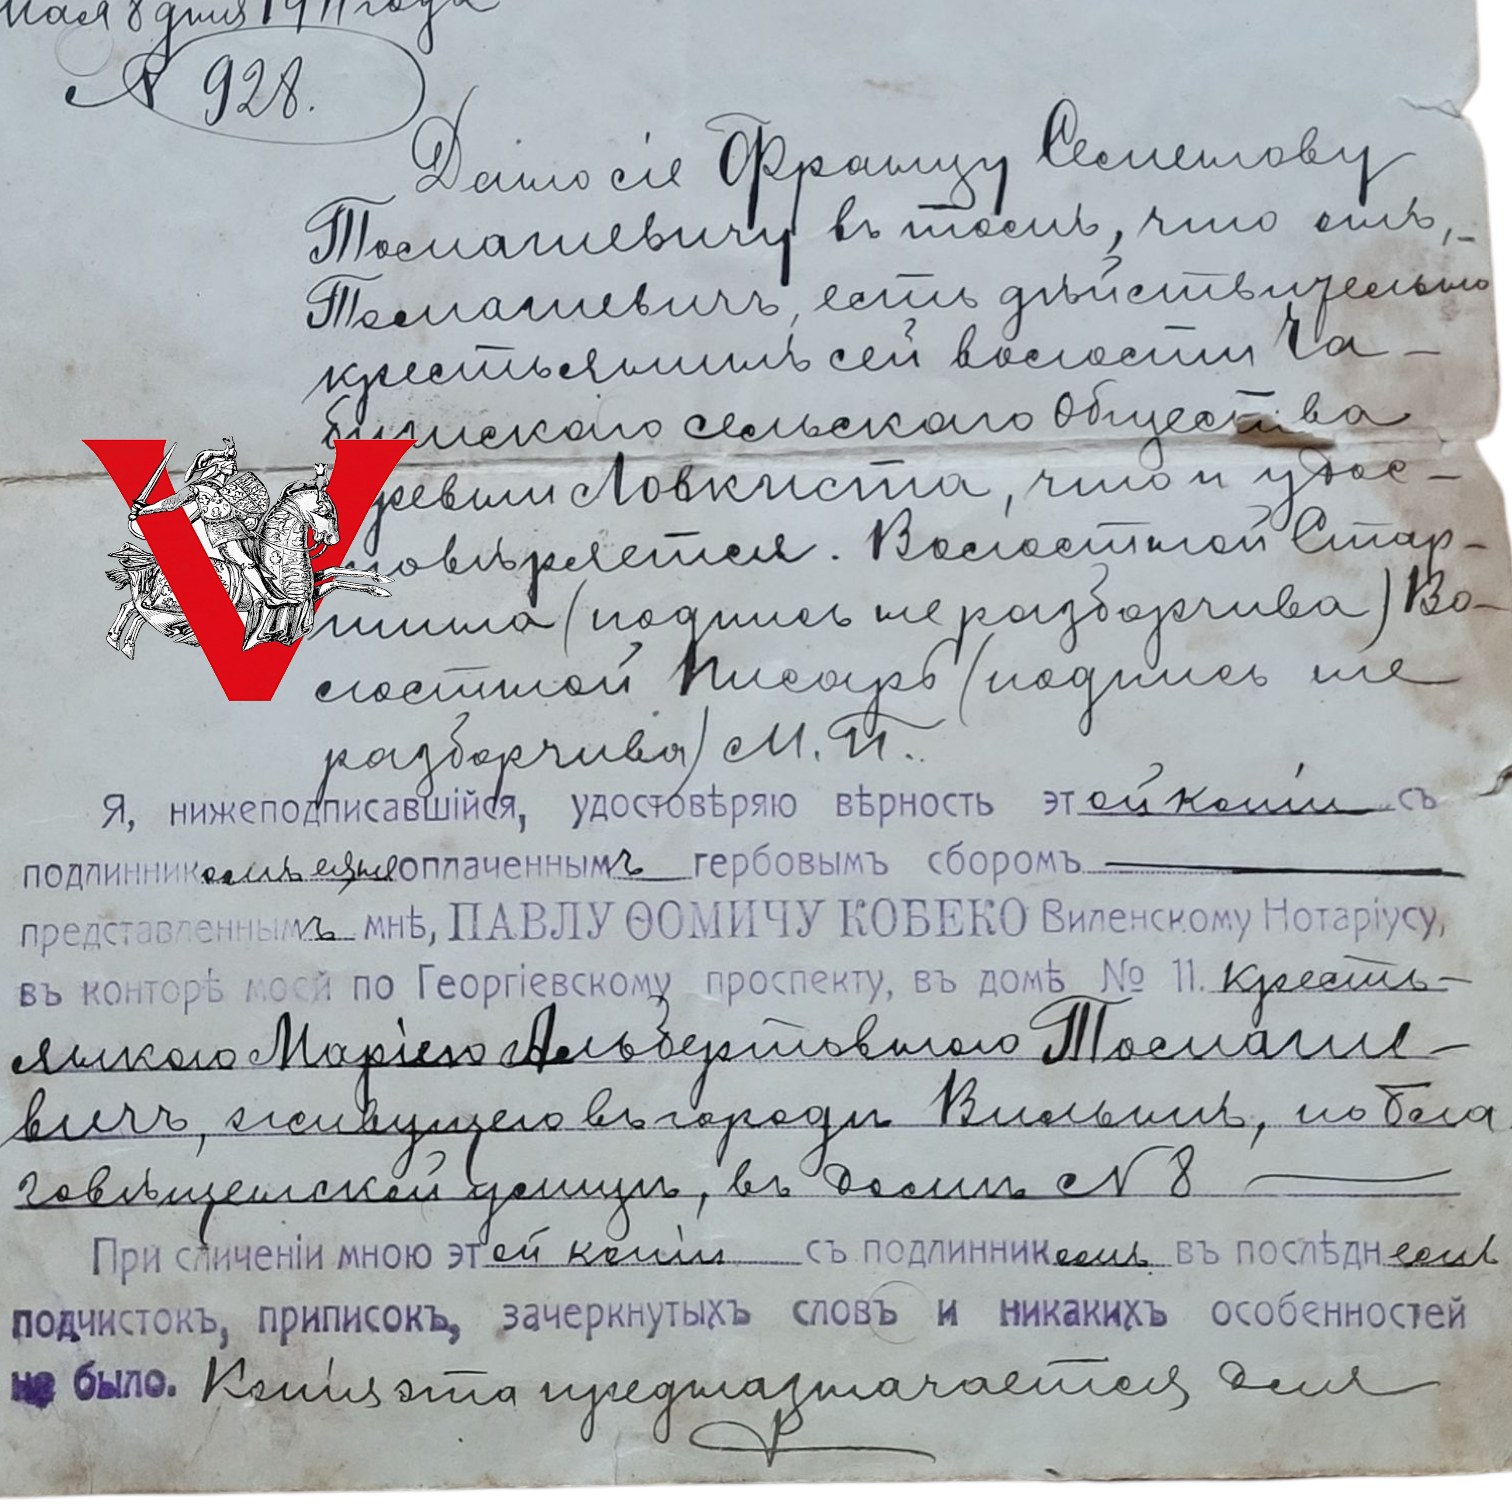 мая 8 дня 1911 года
№ 928.
Дано сіе Францу Семенову
Томашевичу въ томъ, что онъ,
Томашевичъ, есть дѣйствительно
крестьянинъ сей волости Ча-
бишскаго сельскаго Общества
деревни Ловкиста, что и удос-
товѣряется. Волостной Стар-
шина (подпись не разборчива) Во-
лостной Писарь (подпись не
разборчива) М. П.
Я, нижеподписавшійся, удостовѣряю вѣрность этой копіи съ
подлинникомъ оплаченнымъ гербовымъ сборомъ
представленнымъ мнѣ, ПАВЛУ ѲОМИЧУ КОБЕКО Виленскому Нотаріусу,
въ конторѣ моей по Георгіевскому проспекту, въ домѣ № 11. кресть-
янкою Маріею Альбертовною Томаше-
вичъ, живущею въ городѣ Вильнѣ, по Бла
говѣщенской улицѣ, въ домѣ № 8
При сличеніи мною этой копіи съ подлинникомъ въ послѣднемъ
подчистокъ, приписокъ, зачеркнутыхъ словъ и никакихъ особенностей
не было. Копія эта предназначается для
V